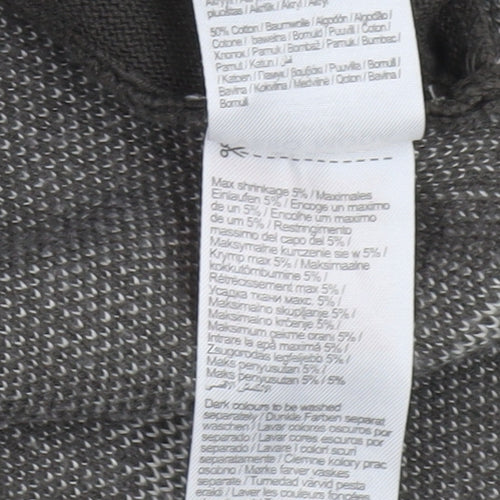 50% Cotton / Baumwolle / Algodón / Algodão /
Cotone / bawełna / Bomuld / Puuvill / Coton /
Хлопок / Pamuk / Bombaž / Pamuk / Bumbac /
Pamut / Katun /
/ Катоен / Памук / Βαμβάκι / Puuvilla / Bomull /
Bavlna / Kokvilna / Medvilnė / Qoton / Bavlna /
Bomull
Max shrinkage 5% / Maximales
Einlaufen 5% / Encoge un maximo
de un 5% / Encolhe um maximo
de um 5% / Restringimento
massimo del capo del 5% /
Maksymalne kurczenie sie w 5% /
Krymp max 5% / Maksimaalne
kokkutõmbumine 5% /
Rétrécissement max 5% /
Усадка ткани макс. 5% /
Maksimalno skupljanje 5% /
Maksimalno krčenje 5% /
Maksimum çekme oranı 5% /
Intrare la apă maximă 5% /
Zsugorodas legfeljebb 5% /
Maks penyusutan 5% /
Maks penyusutan 5% / 5%
Dark colours to be washed
separately / Dunkle Farben separat
waschen / Lavar colores oscuros por
separado / Lavar cores escuros por
separado / Lavare i colori scuri
separatamente / Ciemne kolory prac
osobno / Mørke farver vaskes
separate / Tumedad värvid pesta
eraldi / Laver les couleurs foncées